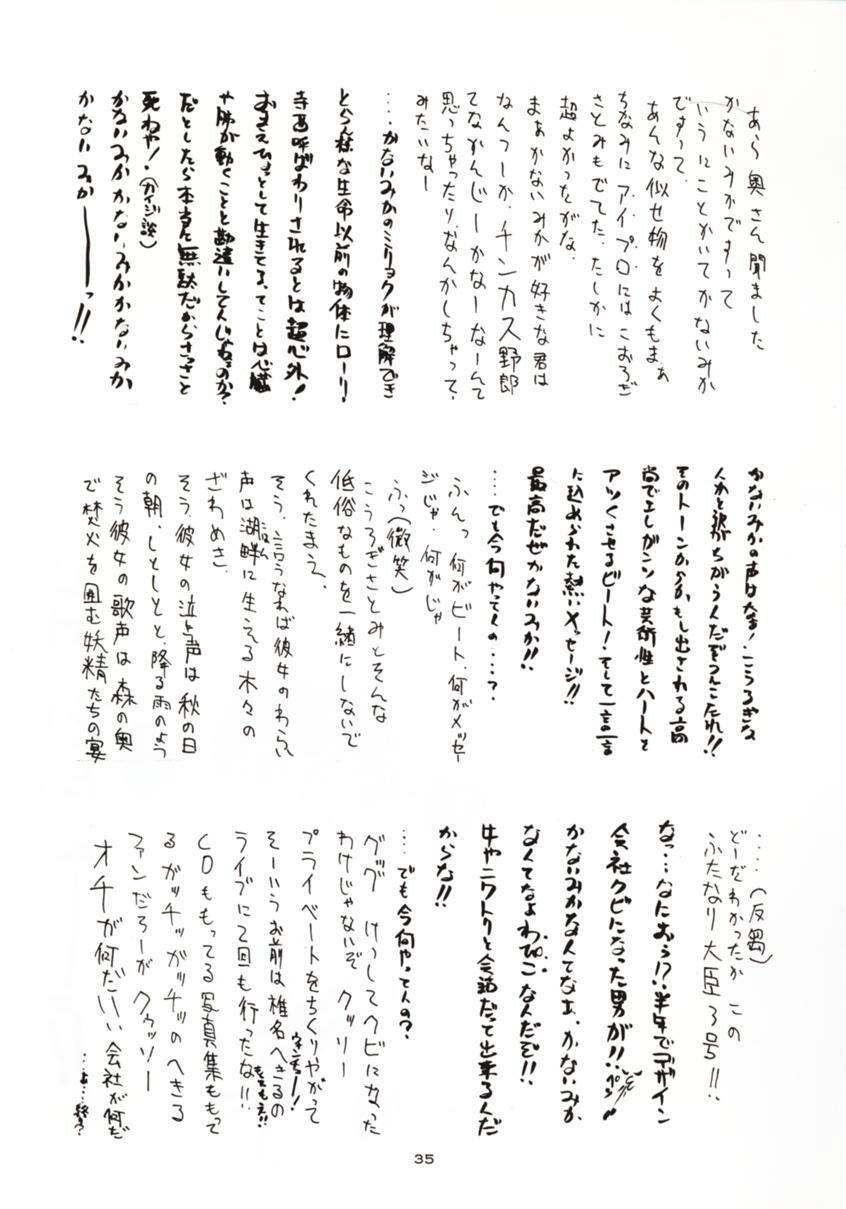 あら奥さん聞きました
かないみかですって
いうにことかいてかないみか
ですって、
あんな似せ物をよくもまぁ
ちなみにアイプロにはこおろぎ
さとみもでてた、たしかに
超よかったがな、
まぁかないみかが好きな君は
なんつーか、チンカス野郎
てなかんじーかなーなーんて
思っちゃったり、なんかしちゃって、
みたいなー
…かないみかのミリョクが理解でき
とらん様な生命以前の物体にロ〜リ〜
呼ばわりされるとは超心外!
おまえひょっとして生きてるってことは心臓
や肺が動くことと勘違いしてんじゃねぇのか?
だとしたら本当に無駄だからさっさと
死ねや!(カイジ談)
かないみかかないみかかないみか
かないみかーーーっ!!
かないみかの声は大事!こうろぎな
んかと訳がちがうんだぞうんこたれ!!
そのトーンからかもし出される高
尚でエレガンツな芸術性とハートを
アツくさせるビート!そして一言一言
に込められた熱いメッセージ!!
最高だぜかないみか!!
…でも今何やってんの…?
ふんっ 何がビート、何がメッセー
ジじゃ、何がじゃ
ふっ(微笑)
こうろぎさとみとそんな
低俗なものを一緒にしないで
くれたまえ、
そう、言うなれば彼女のわらい
声は湖畔に生える木々の
こはん
ざわめき、
そう、彼女の泣き声は秋の日
の朝、しとしとと、降る雨のよう
そう彼女の歌声は森の奥
で焚火を囲む妖精たちの宴
‥‥(反芻)
どーだわかったか この
ふたなり大臣3号!!
なっ…なにおぅ!?半年でデザイン
会社クビになった男が!!ペンッ!!
かないみかなくてなぁ、かないみか
なくてなよわぴこなんだぞ!!
牛やニワトリと会話だって出来るんだ
からな!!
…でも今何やってんの?
グッグ けっしてクビになった
わけじゃないぞ クッソー
プライベートをちくりやがって
そーいうお前は椎名へきるの
ライブに2回も行ったな!!
CDももってる写真集ももって
るガッチッガッチッのへきる
ファンだろーがクゥッソー
オチが何だいい会社が何だ
…よ…終る?
35